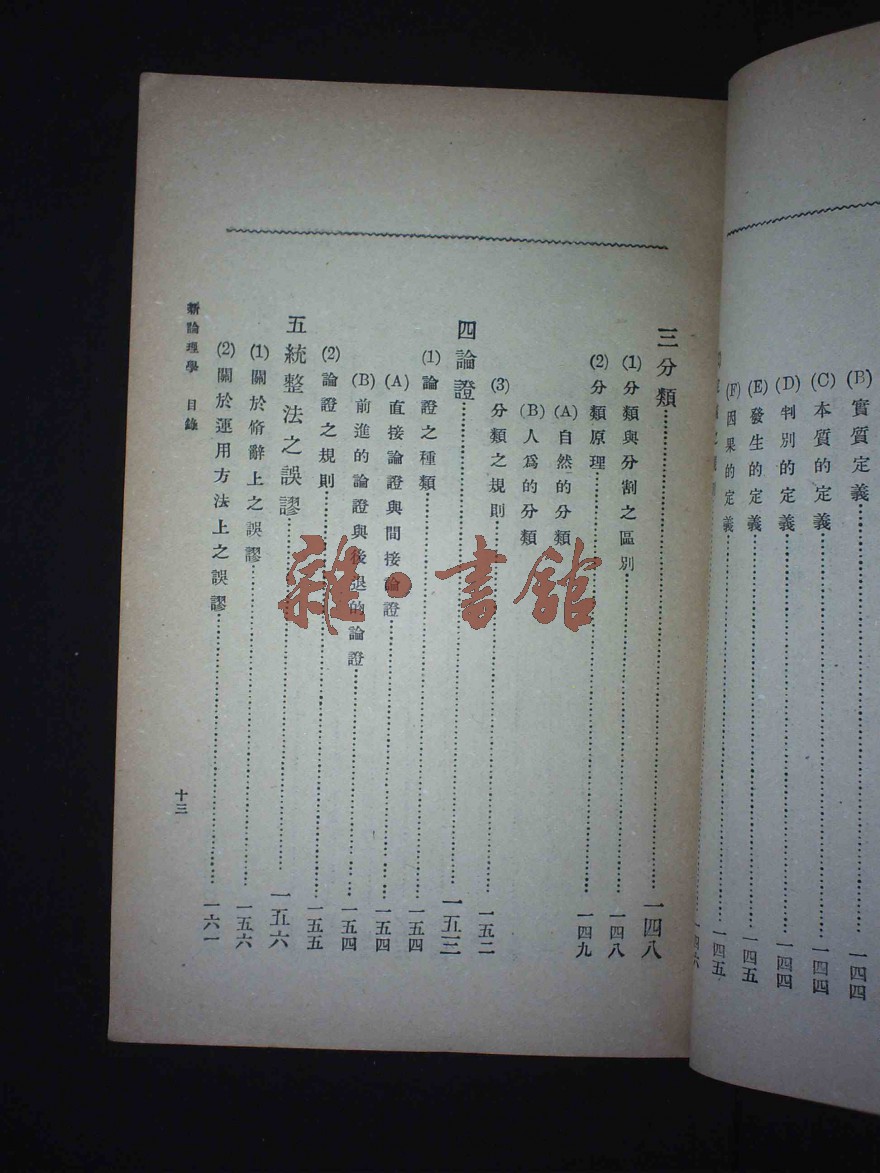 (B)實質定義……一四四
(C)本質的定義……一四四
(D)判別的定義……一四四
(E)發生的定義……一四五
(F)因果的定義……一四五
一四六
三 分類……一四八
(1)分類與分割之區別……一四八
(2)分類原理……一四九
(A)自然的分類
(B)人爲的分類
(3)分類之規則……一五二
四 論證……一五三
(1)論證之種類……一五四
(A)直接論證與間接論證……一五四
(B)前進的論證與後退的論證……一五四
(2)論證之規則……一五五
五 統整法之誤謬……一五六
(1)關於脩辭上之誤謬……一五六
(2)關於運用方法上之誤謬……一六一
新論理學 目錄
十三
雜·書館